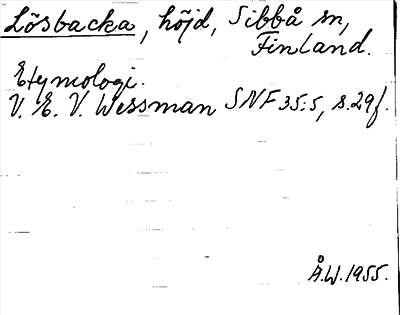 Lösbacka, höjd, Sibbå sn,
Finland.
Etymologi.
V. E. V. Wessman SNF 35:5, s. 29f.
Å.W. 1955.